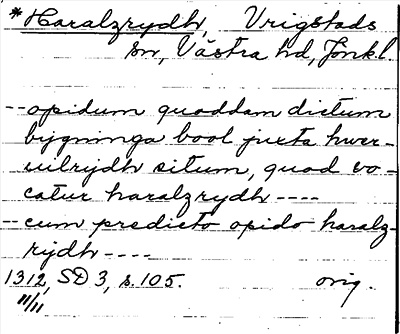 *Haralzrydh, Vrigstads
sn, Västra hd, Jönkl.
-- opidum quoddam dictum
bygninga bool juxta hwer-
uilrydh situm, quod vo-
catur haralzrydh ----
-- cum predicto opido haralz-
rydh ----
1312, SD 3, s. 105. orig.
11/11